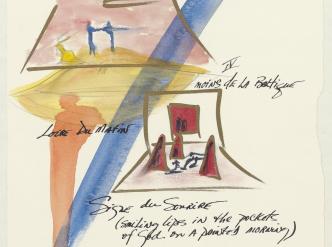 IV
MOINS DE LA BOUTIQUE
LOIRE DU MATIN
SIGNE DU SOURIRE
(SMILING LIPS IN THE POCKETS
OF GOD ON A PAINTER'S MORNING)